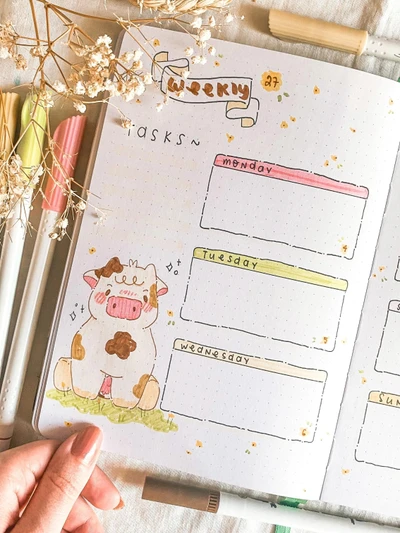 weekly
27
TASKS~
monday
4
Tuesday
5
wednesday
6